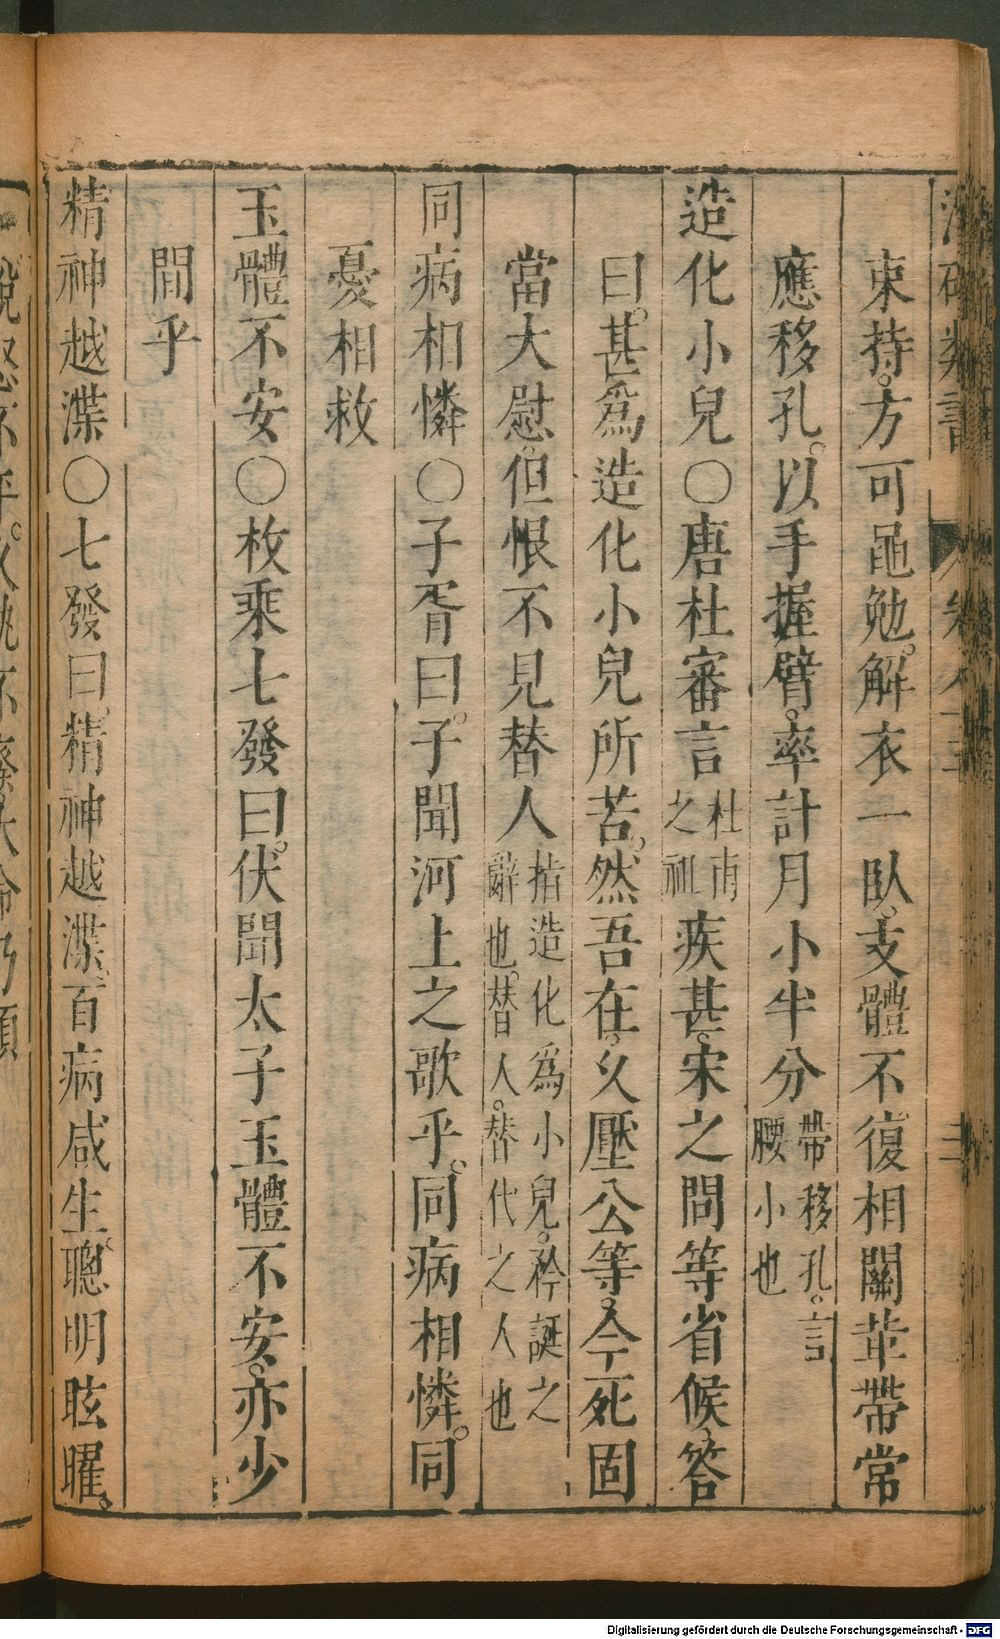 束持。方可黽勉。解衣一臥。支體不復相關。革帶常
應移孔。以手握臂。率計月小半分帶移孔。言腰小也
造化小兒○唐杜審言杜甫之祖疾甚。宋之問等省候。答
曰。甚為造化小兒所苦。然吾在。久壓公等。今死固
當大慰。但恨不見替人指造化為小兒。矜誕之辭也。替人。替代之人也
同病相憐○子胥曰。子聞河上之歌乎。同病相憐。同
憂相救
玉體不安○枚乘七發曰。伏聞太子玉體不安。亦少
間乎
精神越渫○七發曰。精神越渫。百病咸生。聰明眩曜。
Digitalisierung gefördert durch die Deutsche Forschungsgemeinschaft - DFG